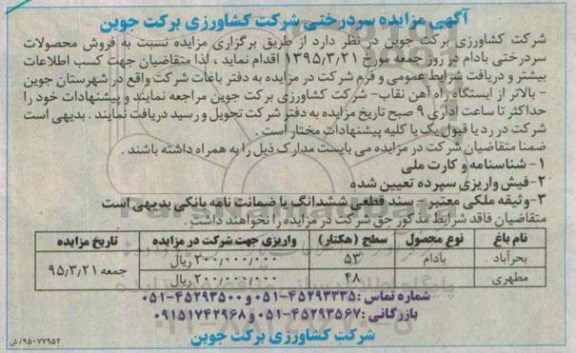 آگهی مزایده سردرختی شرکت کشاورزی برکت جوین
شرکت کشاورزی برکت جوین در نظر دارد از طریق برگزاری مزایده نسبت به فروش محصولات
سردرختی بادام در روز جمعه مورخ ۱۳۹۵/۳/۲۱ اقدام نماید ، لذا متقاضیان جهت کسب اطلاعات
بیشتر و دریافت شرایط عمومی و فرم شرکت در مزایده به دفتر باغات شرکت واقع در شهرستان جوین
- بالاتر از ایستگاه راه آهن نقاب- شرکت کشاورزی برکت جوین مراجعه نمایند و پیشنهادات خود را
حداکثر تا ساعت اداری ۹ صبح تاریخ مزایده به دفتر شرکت تحویل و رسید دریافت نمایند . بدیهی است
شرکت در رد یا قبول یک یا کلیه پیشنهادات مختار است .
ضمنا متقاضیان شرکت در مزایده می بایست مدارک ذیل را به همراه داشته باشند .
۱- شناسنامه و کارت ملی
۲-فیش واریزی سپرده تعیین شده
۳-وثیقه ملکی معتبر- سند قطعی ششدانگ یا ضمانت نامه بانکی بدیهی است
متقاضیان فاقد شرایط مذکور حق شرکت در مزایده را نخواهند داشت.
نام باغ نوع محصول سطح (هکتار) واریزی جهت شرکت در مزایده تاریخ مزایده
بحرآباد بادام ۵۳ ۲۰۰/۰۰۰/۰۰۰ریال جمعه ۹۵/۳/۲۱
مطهری ۴۸ ۲۰۰/۰۰۰/۰۰۰ریال
شماره تماس :۴۵۲۹۳۲۳۵-۰۵۱ و ۴۵۲۹۳۵۰۰-۰۵۱
بازرگانی: ۴۵۲۹۳۵۶۷-۰۵۱ و ۰۹۱۵۱۷۴۲۹۶۸
شرکت کشاورزی برکت جوین
۹۵۰۷۷۹۵۲/ش